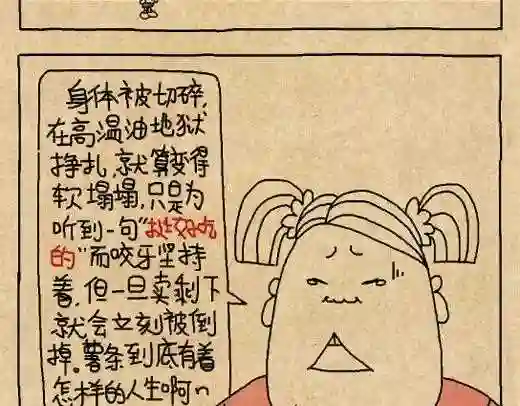 身体被切碎,
在高温油地狱
挣扎,就算变得
软塌塌,只是为
听到一句“挺好吃
的”而咬牙坚持
着,但一旦卖剩下
就会立刻被倒
掉。薯条到底有着
怎样的人生啊~